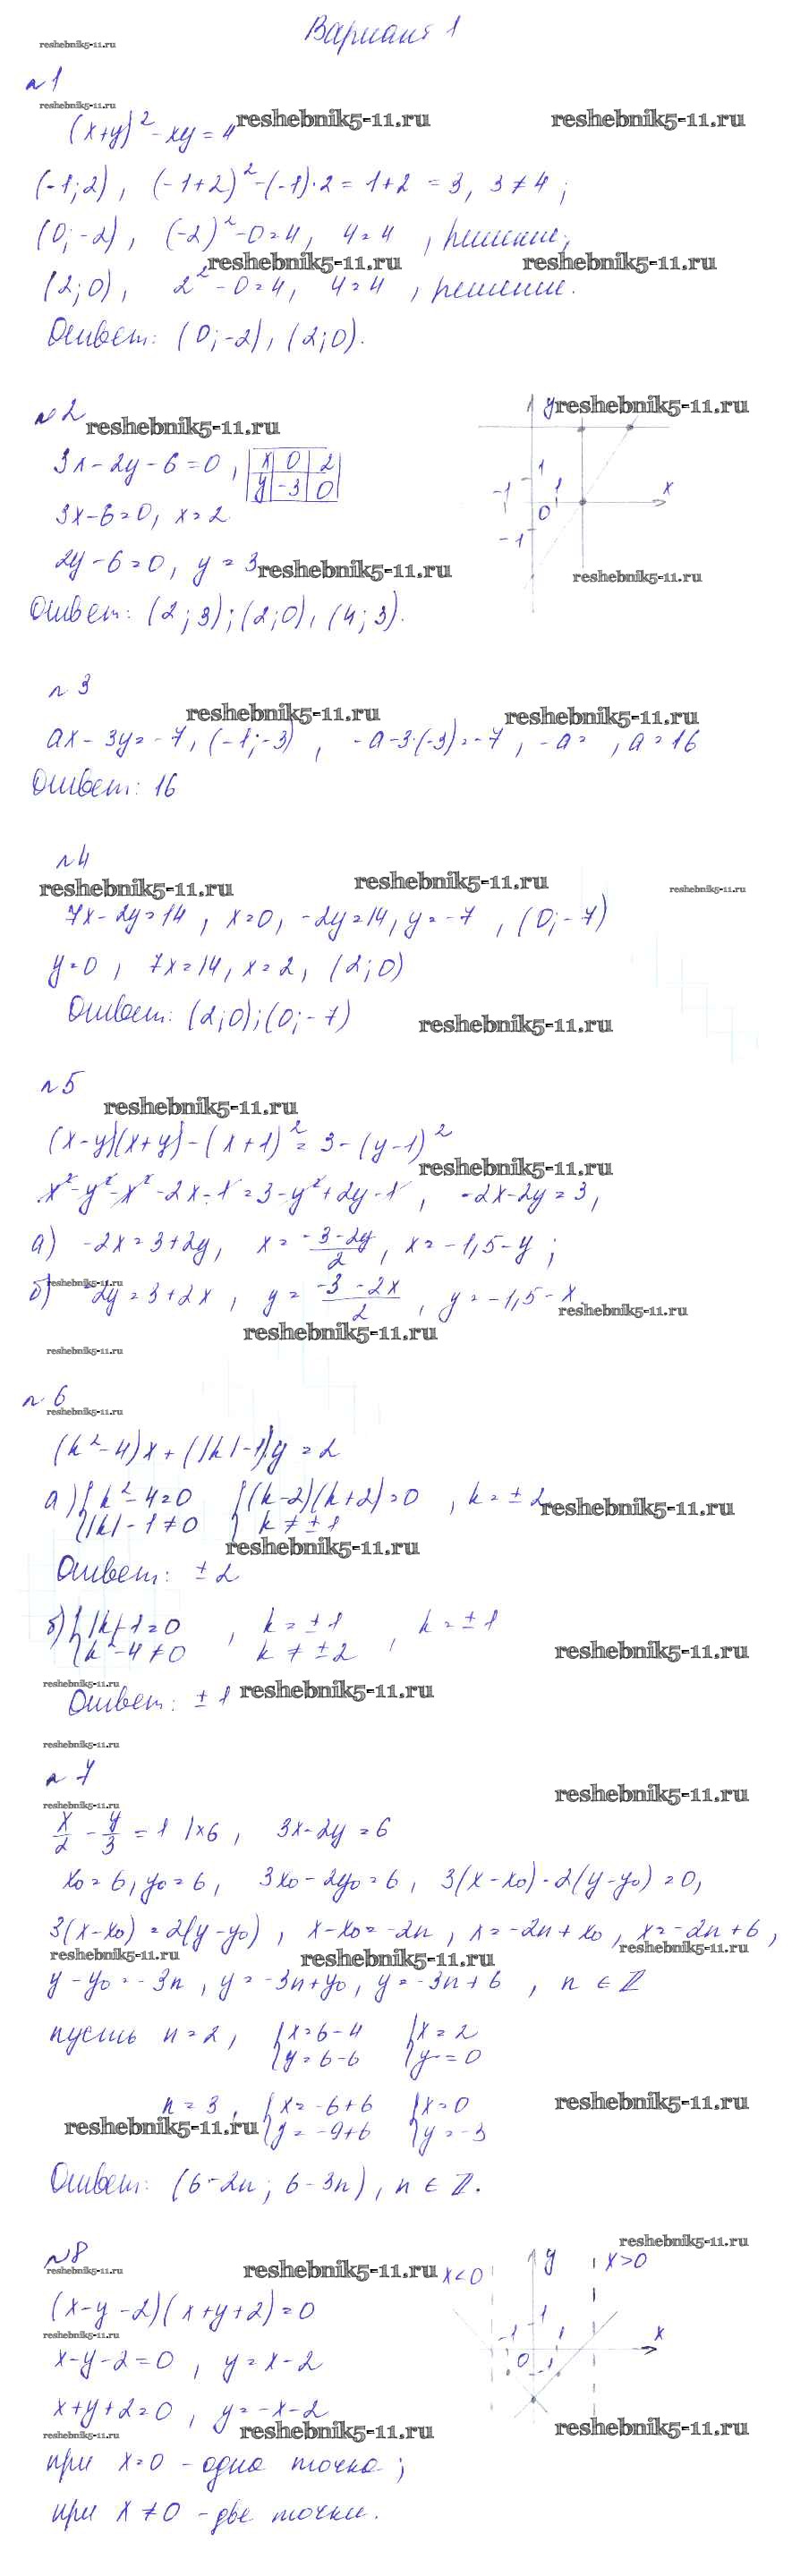 Вариант 1
reshebnik5-11.ru
№1
reshebnik5-11.ru
(x+y)² - xy = 4
reshebnik5-11.ru reshebnik5-11.ru
(-1; 2), (-1+2)² - (-1)·2 = 1+2 = 3, 3 ≠ 4;
(0; -2), (-2)² - 0 = 4, 4 = 4, решение;
reshebnik5-11.ru reshebnik5-11.ru
(2; 0), 2² - 0 = 4, 4 = 4, решение.
Ответ: (0; -2), (2; 0).
№2
reshebnik5-11.ru
y reshebnik5-11.ru
3x - 2y - 6 = 0, x 0 2
y -3 0
1
-1 1 x
0
-1
3x - 6 = 0, x = 2
2y - 6 = 0, y = 3
reshebnik5-11.ru reshebnik5-11.ru
Ответ: (2; 3); (2; 0), (4; 3).
№3
reshebnik5-11.ru reshebnik5-11.ru
ax - 3y = -7, (-1; -3), -a - 3·(-3) = -7, -a = , a = 16
Ответ: 16
№4
reshebnik5-11.ru reshebnik5-11.ru reshebnik5-11.ru
7x - 2y = 14, x = 0, -2y = 14, y = -7, (0; -7)
y = 0, 7x = 14, x = 2, (2; 0)
Ответ: (2; 0); (0; -7)
reshebnik5-11.ru
№5
reshebnik5-11.ru
(x-y)(x+y) - (x+1)² = 3 - (y-1)²
reshebnik5-11.ru
x² - y² - x² - 2x - 1 = 3 - y² + 2y - 1, -2x - 2y = 3,
а) -2x = 3 + 2y, x = (-3 - 2y)/2, x = -1,5 - y;
reshebnik5-11.ru
б) -2y = 3 + 2x, y = (-3 - 2x)/2, y = -1,5 - x
reshebnik5-11.ru
reshebnik5-11.ru
reshebnik5-11.ru
№6
reshebnik5-11.ru
(k² - 4)x + (|k| - 1)y = 2
а) { k² - 4 = 0 { (k-2)(k+2) = 0, k = ±2
|k| - 1 ≠ 0 k ≠ ±1
reshebnik5-11.ru
reshebnik5-11.ru
Ответ: ±2
б) { |k| - 1 = 0, k = ±1, k = ±1
k² - 4 ≠ 0 k ≠ ±2
reshebnik5-11.ru
reshebnik5-11.ru
Ответ: ±1
reshebnik5-11.ru
reshebnik5-11.ru
№7
reshebnik5-11.ru
reshebnik5-11.ru
x/2 - y/3 = 1 |×6, 3x - 2y = 6
x₀ = 6, y₀ = 6, 3x₀ - 2y₀ = 6, 3(x - x₀) - 2(y - y₀) = 0,
3(x - x₀) = 2(y - y₀), x - x₀ = -2n, x = -2n + x₀, x = -2n + 6,
reshebnik5-11.ru reshebnik5-11.ru reshebnik5-11.ru
y - y₀ = -3n, y = -3n + y₀, y = -3n + 6, n ∈ Z
пусть n = 2, { x = 6 - 4 { x = 2
y = 6 - 6 y = 0
n = 3, { x = -6 + 6 { x = 0
y = -9 + 6 y = -3
reshebnik5-11.ru
reshebnik5-11.ru
Ответ: (6 - 2n; 6 - 3n), n ∈ Z.
reshebnik5-11.ru
№8
reshebnik5-11.ru
reshebnik5-11.ru
x<0 y x>0
1
-1 1 x
0
-1
(x - y - 2)(x + y + 2) = 0
reshebnik5-11.ru
x - y - 2 = 0, y = x - 2
x + y + 2 = 0, y = -x - 2
reshebnik5-11.ru reshebnik5-11.ru reshebnik5-11.ru
при x = 0 - одна точка;
при x ≠ 0 - две точки.